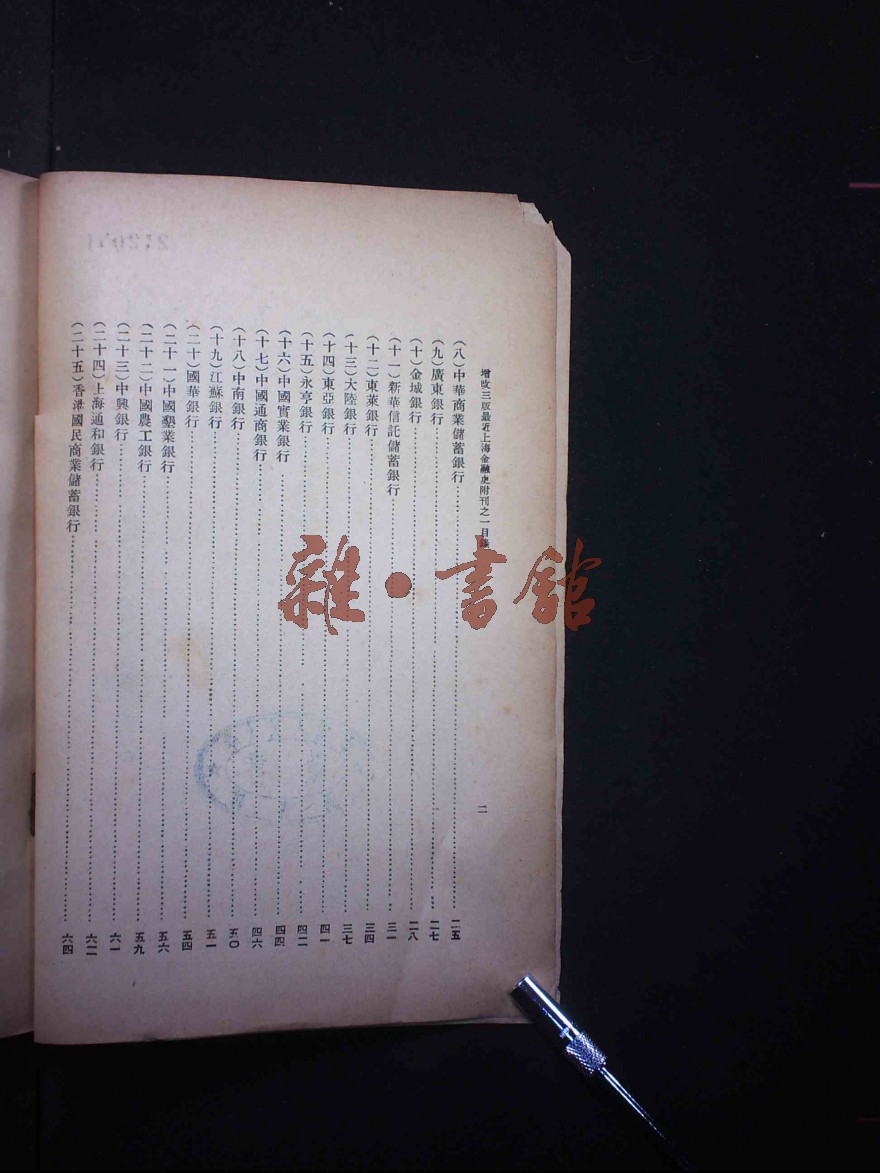 增改三版最近上海金融史附刊之一目錄
二
（八）中華商業儲蓄銀行……二五
（九）廣東銀行……二七
（十）金城銀行……二八
（十一）新華信託儲蓄銀行……三一
（十二）東萊銀行……三四
（十三）大陸銀行……三七
（十四）東亞銀行……四一
（十五）永亨銀行……四二
（十六）中國實業銀行……四四
（十七）中國通商銀行……四六
（十八）中南銀行……五〇
（十九）江蘇銀行……五一
（二十）國華銀行……五四
（二十一）中國墾業銀行……五六
（二十二）中國農工銀行……五九
（二十三）中興銀行……六一
（二十四）上海通和銀行……六二
（二十五）香港國民商業儲蓄銀行……六四
雜·書館